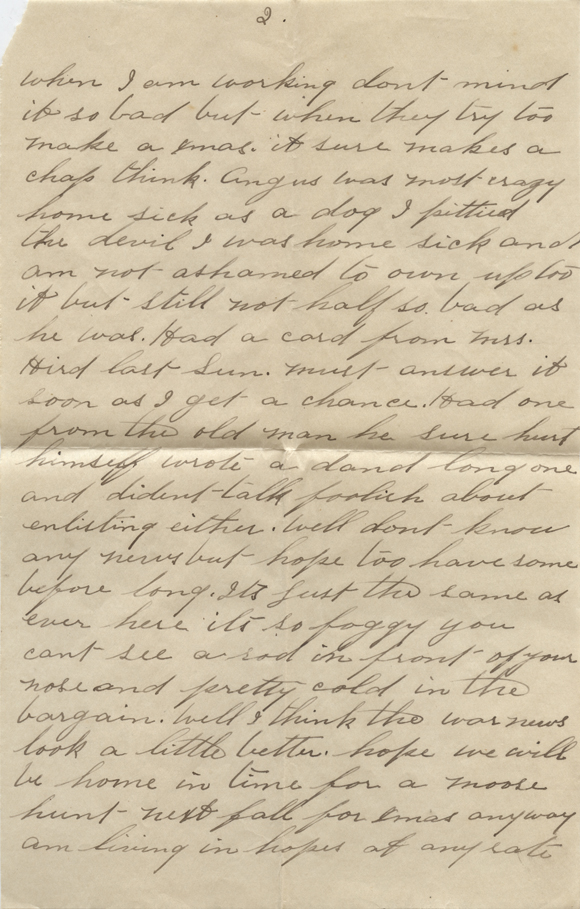 2.
when I am working dont mind
it so bad but when they try too
make a xmas. it sure makes a
chap think. Angus was most crazy
home sick as a dog I pittied
the devil I was home sick and
am not ashamed to own up too
it but still not half so bad as
he was. Had a card from Mrs.
Hird last Sun. must answer it
soon as I get a chance. Had one
from the old man he sure hurt
himself wrote a dand long one
and dident talk foolish about
enlisting either. Well dont know
any news but hope too have some
before long. Its just the same as
ever here its so foggy you
cant see a rod in front of your
nose and pretty cold in the
bargain. Well I think the war news
look a little better. hope we will
be home in time for a moose
hunt next fall for xmas anyway
am living in hopes at any rate